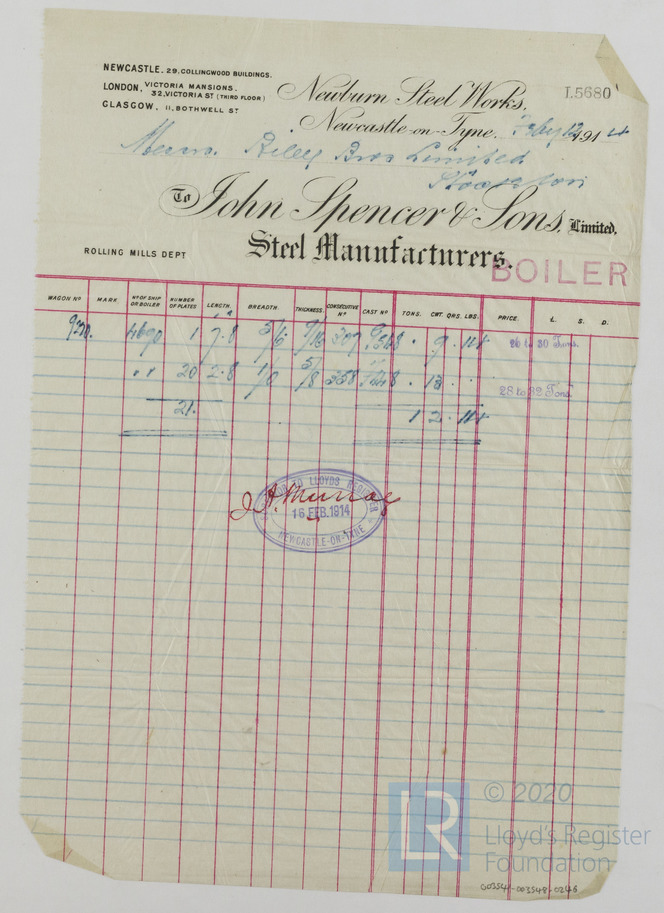 NEWCASTLE. 29, COLLINGWOOD BUILDINGS.
LONDON, VICTORIA MANSIONS.
32, VICTORIA ST (THIRD FLOOR)
GLASGOW, 11, BOTHWELL ST
L5680
Newburn Steel Works,
Newcastle-on-Tyne, Feby 191
Messrs. Riley Bros Limited
Stockton
To John Spencer & Sons, Limited,
Steel Manufacturers.
ROLLING MILLS DEPT
BOILER
WAGON No MARK. No OF SHIP OR BOILER NUMBER OF PLATES LENGTH. BREADTH. THICKNESS. CONSECUTIVE No CAST No TONS. CWT. QRS. LBS. PRICE. £. S. D.
1 7.8 9/16 9 . 14 26 to 30 Tons.
" 20 2.8 1/0 5/8 358 13 . . 28 to 32 Tons
21. 1 2 . 14
SURVEYOR TO LLOYDS REGISTER
J. A. Murray
16 FEB. 1914
NEWCASTLE-ON-TYNE
LR
© 2020
Lloyd's Register
Foundation
003541-003548-0246